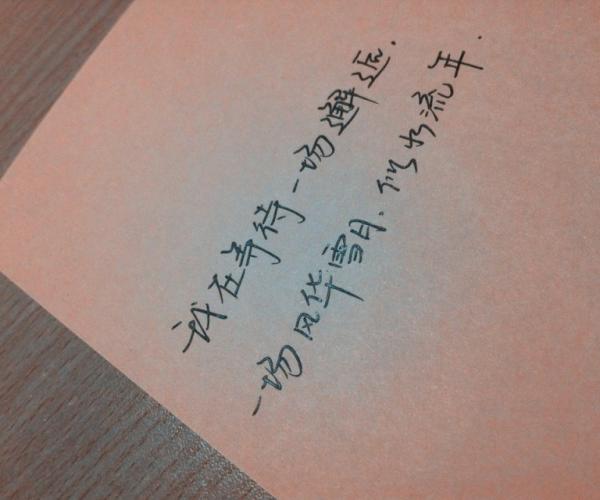 我在等待一场邂逅.
一场风华雪月.似水流年.